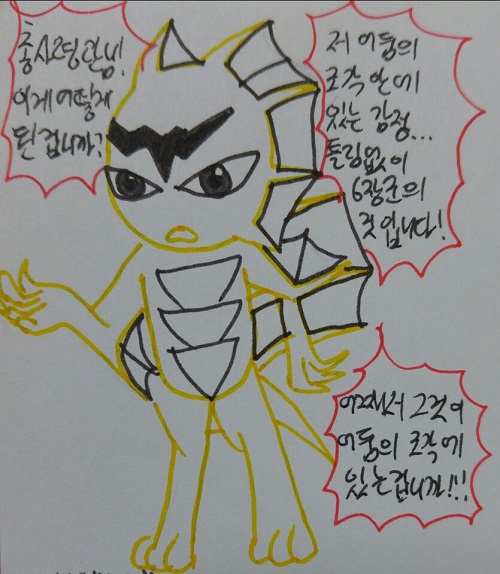 총사령관님!
이게 어떻게
된 겁니까?
저 어둠의
조각 안에
있는 감정...
틀림없이
6장군의
것입니다!
어째서 그것이
어둠의 조각에
있는겁니까!!!